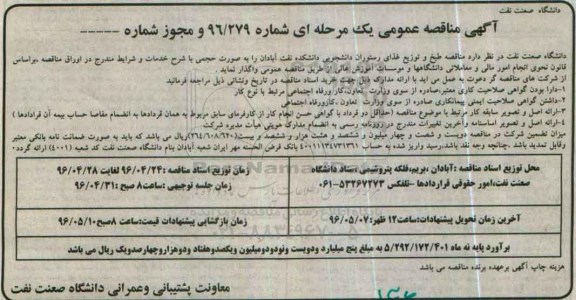 دانشگاه صنعت نفت
آگهی مناقصه عمومی یک مرحله ای شماره ۹۶/۲۷۹ و مجوز شماره -----
دانشگاه صنعت نفت در نظر دارد مناقصه طبخ و توزیع غذای رستوران دانشجویی دانشکده نفت آبادان را به صورت حجمی با شرح خدمات و شرایط مندرج در اوراق مناقصه ،براساس
قانون نحوی انجام امور مالی و معاملاتی دانشگاهها و موسسات آموزش عالی از طریق مناقصه عمومی واگذار نماید .
از شرکت های مناقصه گر دعوت به عمل می آید با ارائه مدارک ذیل جهت خرید اسناد مناقصه در تاریخ ونشانی ذیل مراجعه فرمائید
۱-دارا بودن گواهی صلاحیت کاری معتبر،صادره از سوی وزارت تعاون،کار ورفاه اجتماعی مرتبط با نوع کار
۲-داشتن گواهی صلاحیت ایمنی پیمانکاری صادره از سوی وزارت تعاون ،کارورفاه اجتماعی
۳-ارائه اصل و تصویر سابقه کار مرتبط با موضوع مناقصه (حداقل دو قرارداد با گواهی حسن انجام کار از کارفرمای سابق مربوط به همان قراردادها به انضمام مفاصا حساب بیمه آن قراردادها )
۴-ارائه اصل و تصویر اساسنامه وآخرین تغییرات مندرج در روزنامه رسمی به انضمام مدارک هویتی هیأت مدیره شرکت.
میزان تضمین شرکت در مناقصه دویست و شصت و چهار میلیون و ششصد و هشت هزار و ششصد و بیست(۲۶۴/۶۰۸/۶۲۰)ریال می باشد که باید به صورت ضمانت نامه بانکی معتبر
وقابل تمدید باشد .چنانچه وجه نقد باشد،رسید واریز شده به حساب ۴۰۰۱۱۱۳۴۷۳۱۳۶۱ بانک قرض الحسنه مهر ایران شعبه آبادان بنام دانشگاه صنعت نفت کد شعبه (۴۰۰۱) ارائه گردد.
محل توزیع اسناد مناقصه :آبادان ،بریم،فلکه پتروشیمی ستاد دانشگاه
صنعت نفت،امور حقوقی قراردادها -تلفکس ۵۳۲۶۷۲۷۳-۰۶۱
زمان توزیع اسناد مناقصه :۹۶/۰۴/۲۴ لغایت ۹۶/۰۴/۲۸
زمان جلسه توجیهی :ساعت ۸ صبح :۹۶/۰۴/۳۱
آخرین زمان تحویل پیشنهادات:ساعت ۱۲ ظهر:۹۶/۰۵/۰۷
زمان بازگشایی پیشنهادات قیمت:ساعت ۸ صبح ۹۶/۰۵/۱۰
برآورد پایه نه ماه ۵/۲۹۲/۱۷۲/۴۰۱ به مبلغ پنج میلیارد ودویست ونودودومیلیون ویکصدوهفتاد ودوهزاروچهارصدویک ریال می باشد
هزینه چاپ آگهی برعهده برنده مناقصه می باشد
معاونت پشتیبانی وعمرانی دانشگاه صنعت نفت